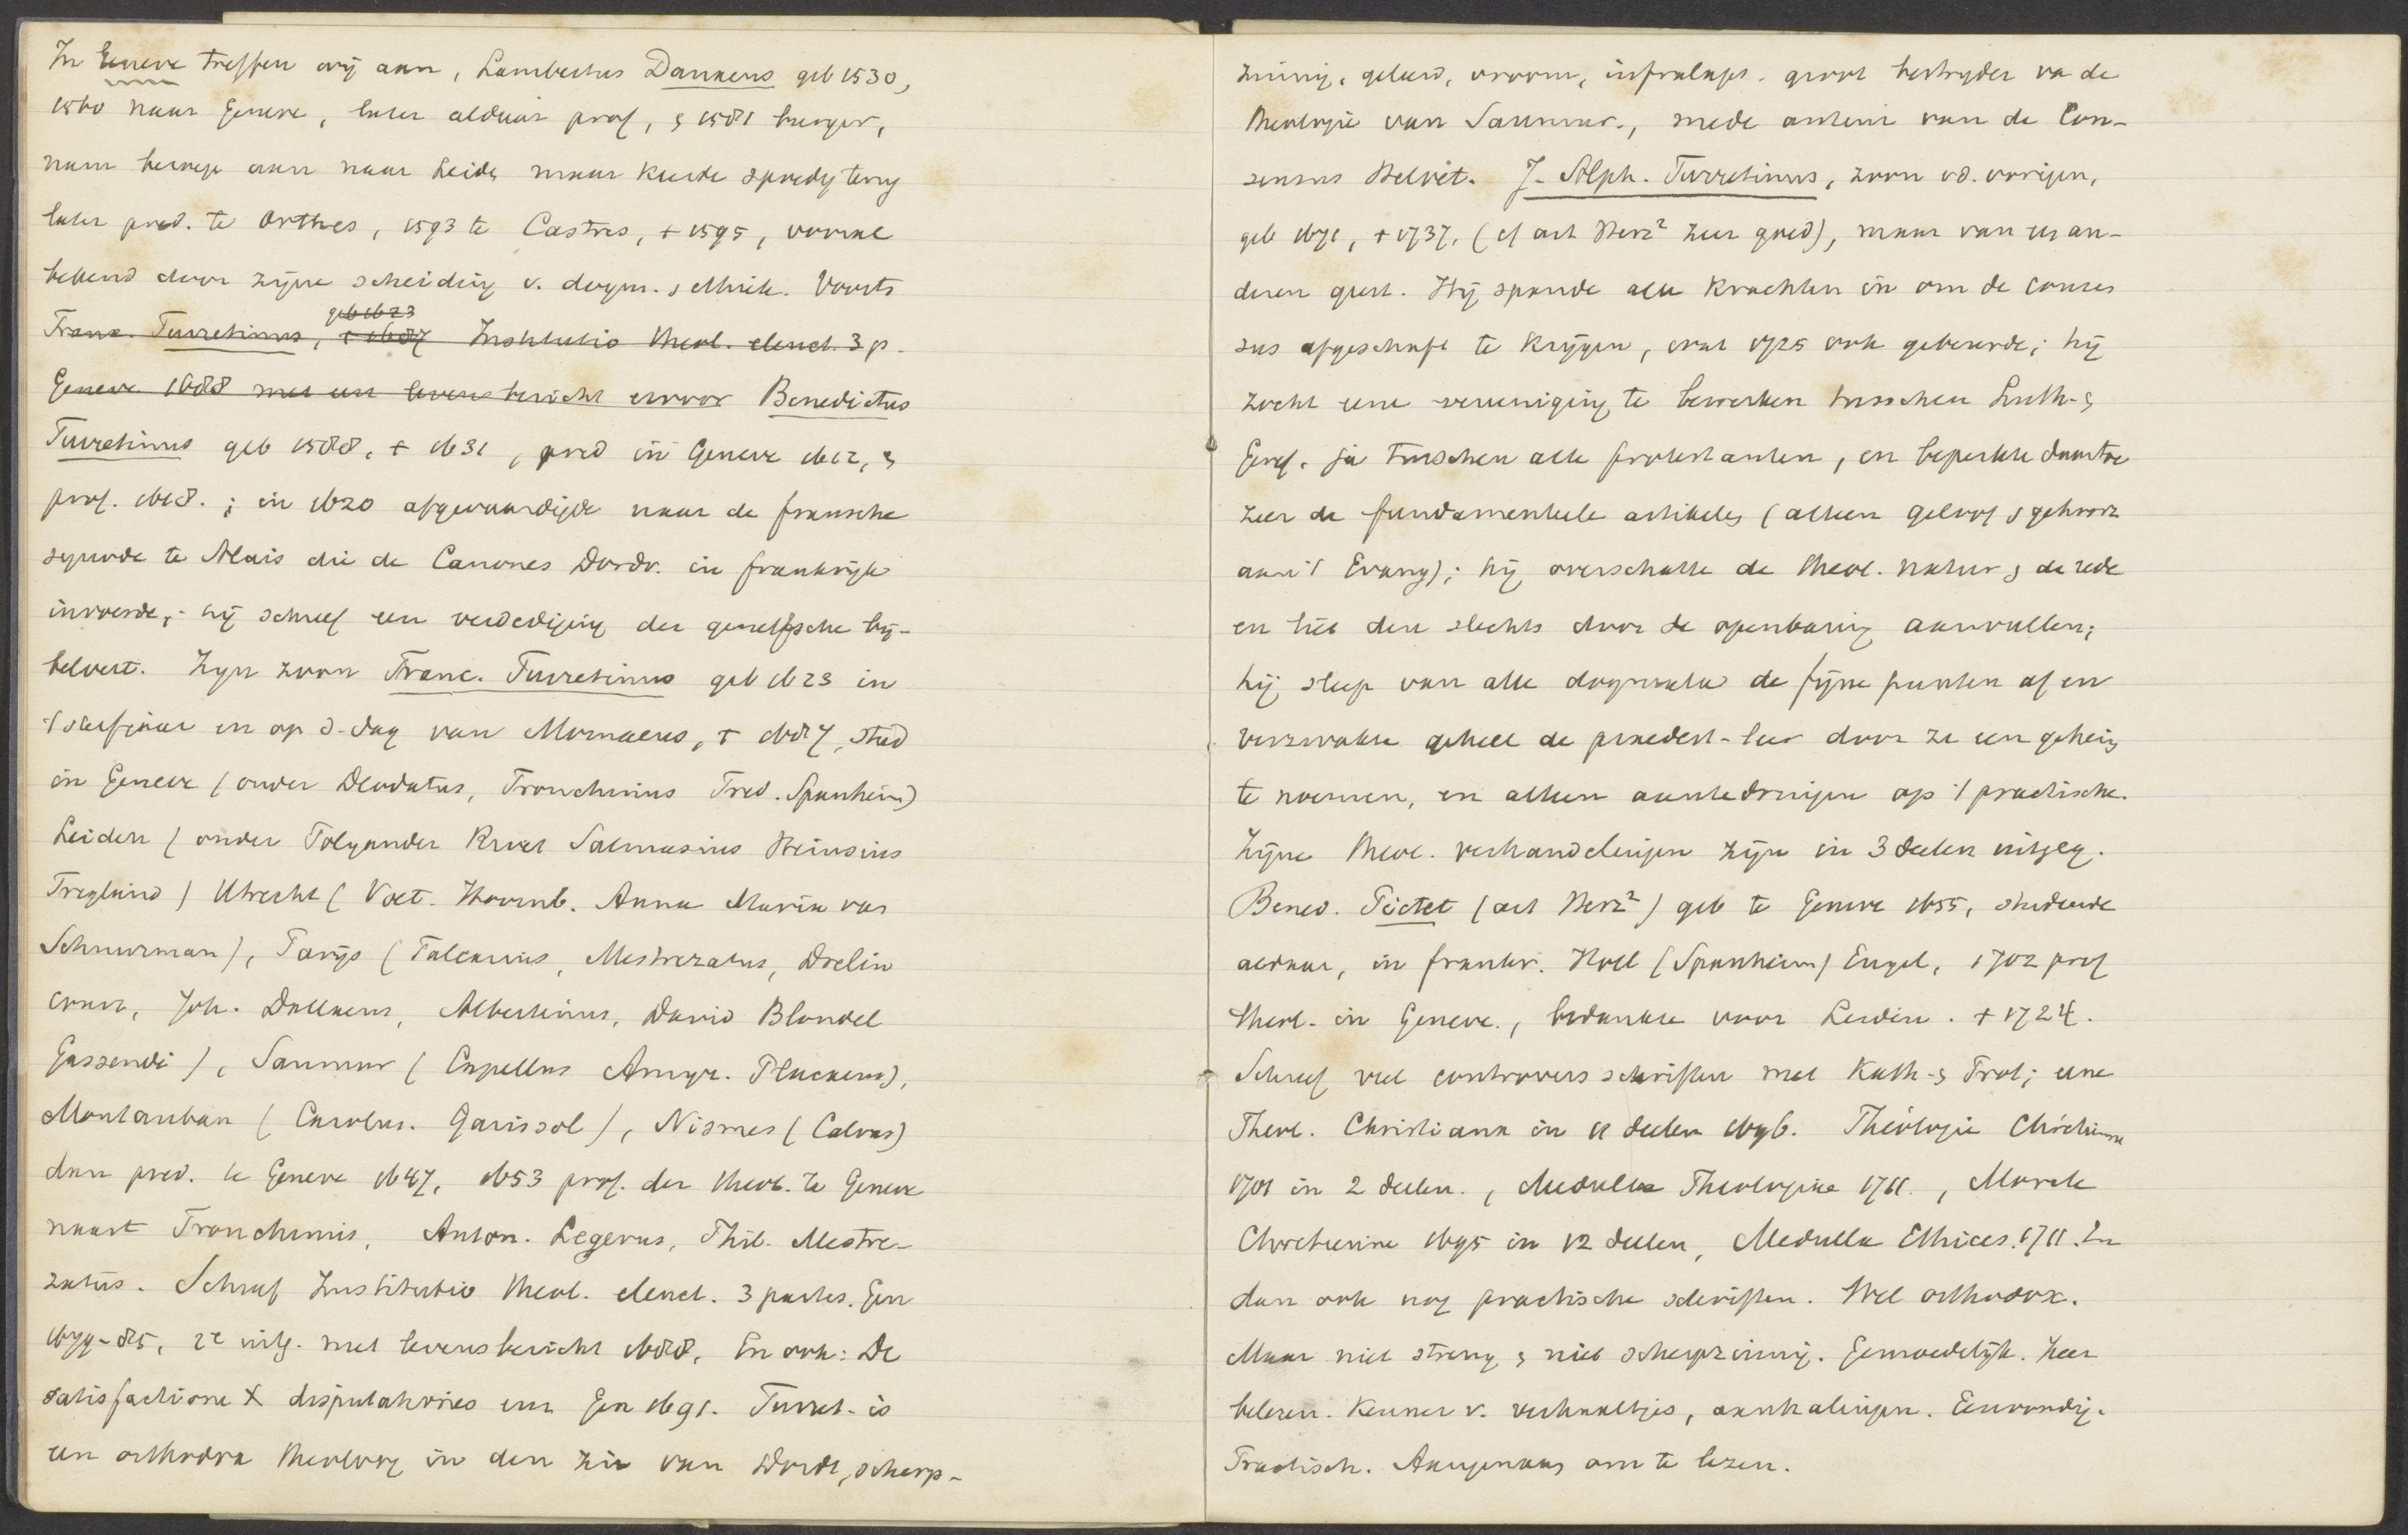 In Geneve treffen wij aan, Lambertus Danaeus geb 1530,
1560 naar Geneve, later aldaar prof, & 1581 burger,
nam beroep aan naar Leide maar keerde spoedig terug
later pred. te Orthes, 1593 te Castres, + 1595, vooral
bekend door zijne scheiding v. dogm. & ethiek. Voorts
Franc. Turretinus, geb 1623 + 1687 Institutio theol. elenct. 3 p.
Geneve 1688 met een levensbericht ervoor Benedictus
Turretinus geb 1588, + 1631, pred in Geneve 1612, &
prof. 1618.; in 1620 afgevaardigde naar de fransche
synode te Alais die de Canones Dordr. in frankrijk
invoerde; hij schreef een verdediging der geneefsche bij-
belvert. Zijn zoon Franc. Turretinus geb 1623 in
't sterfjaar en op d. dag van Mornaeus, + 1687, stud
in Geneve (onder Deodatus, Tronchinus Fred. Spanheim)
Leiden (onder Polyander Rivet Salmasius Heinsius
Trigland) Utrecht (Voet. Hoornb. Anna Maria van
Schuurman), Parijs (Falcarius, Mestrezatus, Drelin
court, Joh. Dallaeus, Albertinus, David Blondel
Gassendi), Saumur (Capellus Amyr. Placaeus),
Montauban (Carolus. Garissol), Nismes (Calvus)
dan pred. te Geneve 1647, 1653 prof. der theol. te Geneve
naast Tronchinus, Anton. Legerus, Phil. Mestre-
zatus. Schreef Institutio theol. elenct. 3 partes. Gen
1679-85, 2e uitg. met levensbericht 1688, En ook: De
satisfactione X disputationes enz Gen 1691. Turret. is
een orthodox theoloog in den zin van Dordt, scherp-
zinnig, geleerd, vroom, infralaps. groot bestrijder va de
theologie van Saumur., mede auteur van de Con-
sensus Helvet. J. Alph. Turretinus, zoon v.d. vorigen,
geb 1671, + 1737, (cf art Herz² zeer goed), maar van een an-
deren geest. Hij spande alle krachten in om de consen
sus afgeschaft te krijgen, wat 1725 ook gebeurde; hij
zocht eene vereeniging te bewerken tusschen Luth. &
Geref. ja tusschen alle protestanten, en beperkte daartoe
zeer de fundamenteele artikeles (alleen geloof & gehoorz
aan 't Evang); hij overschatte de theol. natur & de rede
en liet den slechts door de openbaring aanvullen;
hij sleep van alle dogmata de fijne punten af en
verzwakte geheel de praedest-leer door ze een geheim
te noemen, en alleen aan te dringen op 't practische.
Zijne theol. verhandelingen zijn in 3 deelen uitgeg.
Bened. Pictet (art Herz²) geb te Geneve 1655, studeerde
aldaar, in frankr. Holl (Spanheim) Engel, 1702 prof
theol. in Geneve., bedankte voor Leiden. + 1724.
Schreef veel controvers schriften met Kath. & Prot; eene
Theol. Christiana in 11 deelen 1696. Théologie Chrétienne
1701 in 2 deelen., Medulla Theologiae 1711., Morale
Chretienne 1695 in 12 deelen, Medulla Ethices. 1711. En
dan ook nog practische schriften. Wel orthodox.
Maar niet streng & niet scherpzinnig. Gemoedelijk. Zeer
belezen. Kenner v. verhaaltjes, aanhalingen. Eenvoudig.
Practisch. Aangenaam om te lezen.